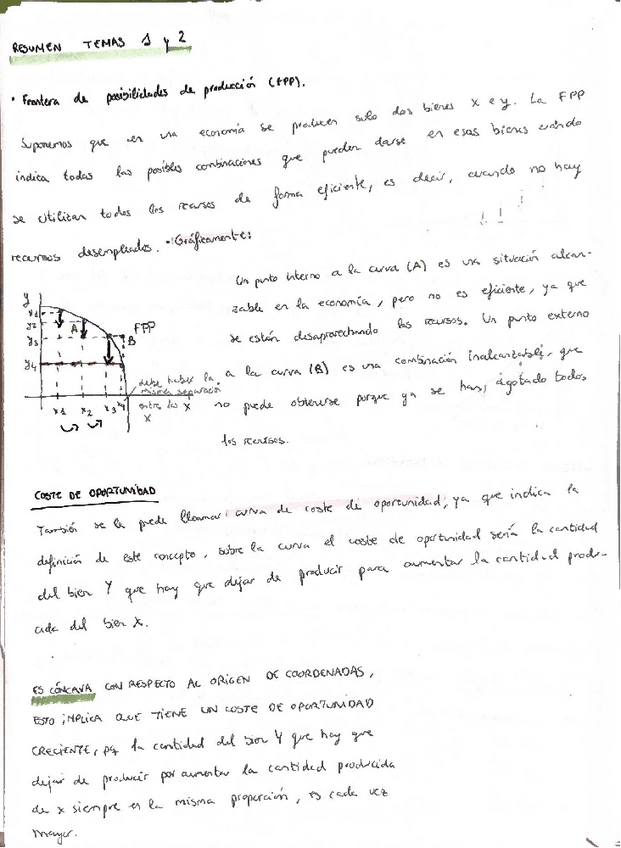 RESUMEN TEMAS 1 y 2
• Frontera de posibilidades de producción (FPP).
Suponemos que en una economía se producen solo dos bienes X e y. La FPP
indica todas las posibles combinaciones que pueden darse en esos bienes cuando
se utilizan todos los recursos de forma eficiente, es decir, cuando no hay
recursos desempleados. • Gráficamente:
Un punto interno a la curva (A) es una situación alcan-
zable en la economía, pero no es eficiente, ya que
se están desaprovechando los recursos. Un punto externo
a la curva (B) es una combinación inalcanzable, que
no puede obtenerse porque ya se han agotado todos
los recursos.
y
y1
y2
y3
y4
A
FPP
B
x1 x2 x3 x4
debe haber la
misma separación
entre las X
X
COSTE DE OPORTUNIDAD
También se la puede llamar curva de coste de oportunidad, ya que indica la
definición de este concepto, sobre la curva el coste de oportunidad sería la cantidad
del bien Y que hay que dejar de producir para aumentar la cantidad produ-
cida del bien X.
ES CÓNCAVA CON RESPECTO AL ORIGEN DE COORDENADAS,
ESTO IMPLICA QUE TIENE UN COSTE DE OPORTUNIDAD
CRECIENTE, pq la cantidad del bien Y que hay que
dejar de producir por aumentar la cantidad producida
de x siempre en la misma proporción, es cada vez
mayor.